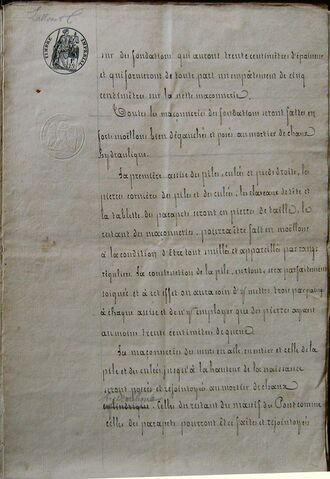 sur des fondations qui auront trente centimètres d'épaisseur
et qui formeront de toute part un empâtement de cinq
centimètres sur la nette maçonnerie.
Toutes les maçonneries des fondations seront faites en
forts moëllons bien dégauchis et posés au mortier de chaux
hydraulique.
La première assise des piles, culées et pieds droits, les
pierres cornières des piles et des culées, les claveaux de tête et
la tablette des parapets seront en pierres de taille, le
restant des maçonneries, pourra être fait en moëllons
à la condition d'être tout smillé et appareillés par rangs
réguliers. La construction de la pile, surtout, sera parfaitement
soignée et à cet effet on aura soin d'y mettre trois parpaings
à chaque assise et de n'y employer que des pierres ayant
au moins trente centimètres de queue.
La maçonnerie des murs en aile en entier et celle de la
pile et des culées jusqu'à la hauteur de la naissance
seront posées et rejointoyées au mortier de chaux
hydraulique
cylindrique. Celles du restant du massif du Pont comme
celles des parapets pourront être faites et rejointoyées